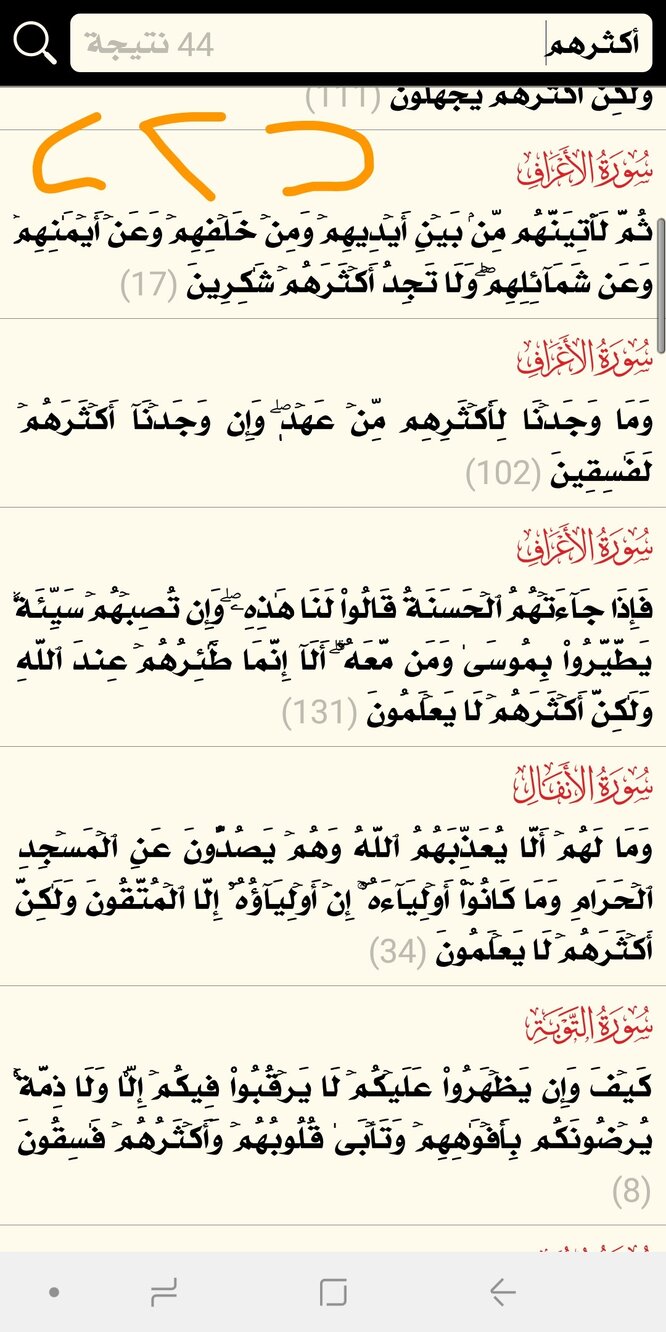 أكثرهم 44 نتيجة
ولكن أكثرهم يجهلون (111)
سُورَةُ الأَعۡرَافِ
ثُمَّ لَأٓتِيَنَّهُم مِّنۢ بَيۡنِ أَيۡدِيهِمۡ وَمِنۡ خَلۡفِهِمۡ وَعَنۡ أَيۡمَٰنِهِمۡ
وَعَن شَمَآئِلِهِمۡۖ وَلَا تَجِدُ أَكۡثَرَهُمۡ شَٰكِرِينَ (17)
سُورَةُ الأَعۡرَافِ
وَمَا وَجَدۡنَا لِأَكۡثَرِهِم مِّنۡ عَهۡدٖۖ وَإِن وَجَدۡنَآ أَكۡثَرَهُمۡ
لَفَٰسِقِينَ (102)
سُورَةُ الأَعۡرَافِ
فَإِذَا جَآءَتۡهُمُ ٱلۡحَسَنَةُ قَالُواْ لَنَا هَٰذِهِۦۖ وَإِن تُصِبۡهُمۡ سَيِّئَةٞ
يَطَّيَّرُواْ بِمُوسَىٰ وَمَن مَّعَهُۥٓۗ أَلَآ إِنَّمَا طَٰٓئِرُهُمۡ عِندَ ٱللَّهِ
وَلَٰكِنَّ أَكۡثَرَهُمۡ لَا يَعۡلَمُونَ (131)
سُورَةُ الأَنفَالِ
وَمَا لَهُمۡ أَلَّا يُعَذِّبَهُمُ ٱللَّهُ وَهُمۡ يَصُدُّونَ عَنِ ٱلۡمَسۡجِدِ
ٱلۡحَرَامِ وَمَا كَانُوٓاْ أَوۡلِيَآءَهُۥٓۚ إِنۡ أَوۡلِيَآؤُهُۥٓ إِلَّا ٱلۡمُتَّقُونَ وَلَٰكِنَّ
أَكۡثَرَهُمۡ لَا يَعۡلَمُونَ (34)
سُورَةُ التَّوۡبَةِ
كَيۡفَ وَإِن يَظۡهَرُواْ عَلَيۡكُمۡ لَا يَرۡقُبُواْ فِيكُمۡ إِلّٗا وَلَا ذِمَّةٗۚ
يُرۡضُونَكُم بِأَفۡوَٰهِهِمۡ وَتَأۡبَىٰ قُلُوبُهُمۡ وَأَكۡثَرُهُمۡ فَٰسِقُونَ
(8)